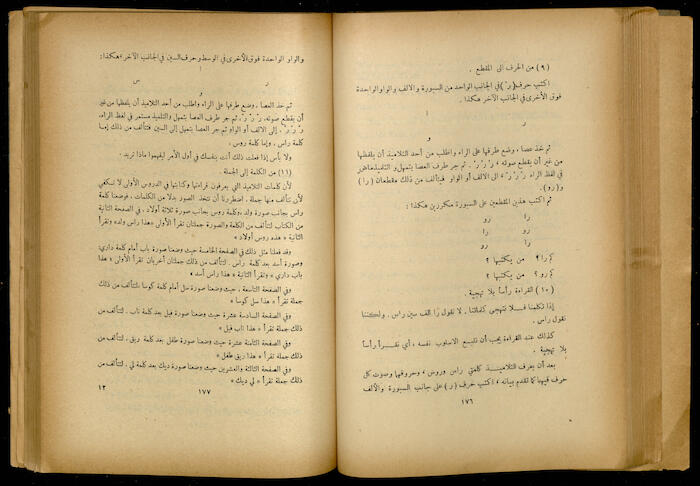 ( ٩ ) من الحرف الى المقطع .
اكتب حرف ( رَ ) في الجانب الواحد من السبورة والالف والواو الواحدة
فوق الأخرى في الجانب الآخر هكذا .
ا
ر
و
ثم خذ عصا ، وضع طرفها على الراء واطلب من أحد التلاميذ أن يلفظها
من غير أن يقطع صوته ، رَ رَ رَ . ثم جر طرف العصا بتمهل والتلميذ
في لفظ الراء رَ رَ رَ ، الى الالف أو الواو فيتألف من ذلك مقطعان ( را )
و ( رو ) .
ثم اكتب هذين المقطعين على السبورة مكررين هكذا :
را رو
رو را
را رو
كم را ؟ من يكتبها ؟
كم رو ؟ من يكتبها ؟
( ١٠ ) القراءة رأساً بلا تهجية .
إذا تكلمنا فلا نتهجى كلماتنا . لا نقول را الف سين راس . ولكننا
نقول راس .
كذلك عند القراءة يجب أن نتبع الاسلوب نفسه ، أي نقرأ رأساً
بلا تهجية .
بعد أن يعرف التلاميذ كلمتي راس وروس ، وحروفها وصوت كل
حرف فيها كما تقدم بيانه ، اكتب حرف ( ر ) على جانب السبورة والألف
١٧٦
والواو الواحدة فوق الأخرى في الوسط وحرف السين في الجانب الآخر هكذا :
ا
ر س
و
ثم خذ العصا ، وضع طرفها على الراء واطلب من أحد التلاميذ أن يلفظها من غير
أن يقطع صوته ، رَ رَ رَ ، ثم جر طرف العصا بتمهل والتلميذ مستمر في لفظ الراء ،
رَ رَ رَ ، إلى الالف أو الواو ثم جر العصا بتمهل إلى السين فتتألف من ذلك إما
كلمة راس ، وإما كلمة روس .
ولا بأس إذا فعلت ذلك أنت بنفسك في أول الأمر ليفهموا ماذا تريد .
( ١١ ) من الكلمة إلى الجملة .
لأن كلمات التلاميذ التي يعرفون قراءتها وكتابتها في الدروس الأولى لا تكفي
لأن تتألف منها جملة ، اضطررنا أن نتخذ الصور بدلا من الكلمات ، فوضعنا كلمة
راس بجانب صورة ولد ، وكلمة روس بجانب صورة ثلاثة أولاد ، في الصفحة الثانية
من الكتاب لتتألف من الكلمة والصورة جملتان تقرأ الأولى « هذا راس ولد » وتقرأ
الثانية « هذه روس أولاد »
وقد فعلنا مثل ذلك في الصفحة الخامسة حيث وضعنا صورة باب أمام كلمة داري ،
وصورة أسد بعد كلمة راس . لتتألف من ذلك جملتان أخريان تقرأ الأولى « هذا
باب داري » وتقرأ الثانية « هذا راس أسد »
وفي الصفحة التاسعة ، حيث وضعنا صورة سل أمام كلمة كوسا ، لتتألف من ذلك
جملة تقرأ « هذا سل كوسا »
وفي الصفحة السادسة عشرة حيث وضعنا صورة فيل بعد كلمة ناب . لتتألف من
ذلك جملة تقرأ « هذا ناب فيل »
وفي الصفحة الثامنة عشرة حيث وضعنا صورة طفل بعد كلمة ريق ، لتتألف من
ذلك جملة تقرأ « هذا ريق طفل »
وفي الصفحة الثالثة والعشرين حيث وضعنا صورة ديك بعد كلمة لي ، لتتألف من
ذلك جملة تقرأ « لي ديك »
١٧٧ ١٢